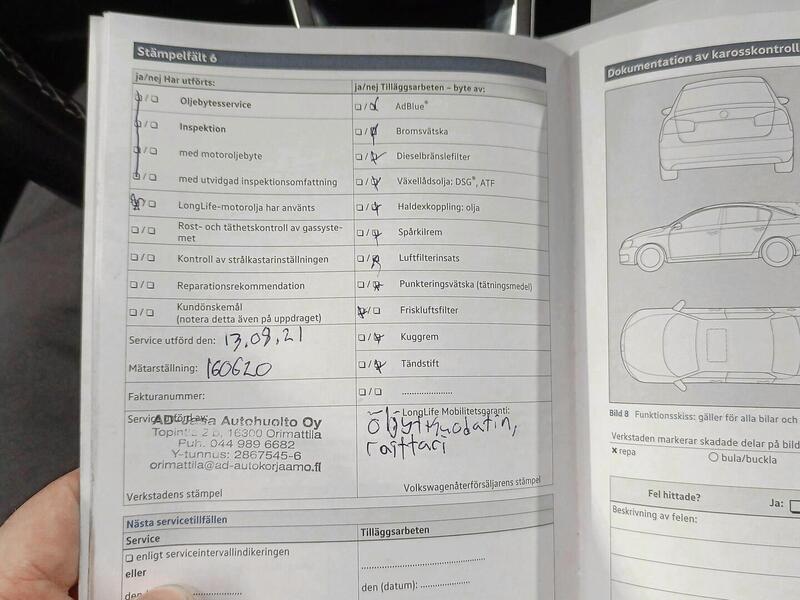 Stämpelfält 6
ja/nej Har utförts:
Oljebytesservice
Inspektion
med motoroljebyte
med utvidgad inspektionsomfattning
LongLife-motorolja har använts
Rost- och täthetskontroll av gassyste-
met
Kontroll av strålkastarinställningen
Reparationsrekommendation
Kundönskemål
(notera detta även på uppdraget)
Service utförd den: 13.09.21
Mätarställning: 160620
Fakturanummer:
Service utförd av:
AD- Jasa Autohuolto Oy
Topintie 2 b, 16300 Orimattila
Puh. 044 989 6682
Y-tunnus: 2867545-6
orimattila@ad-autokorjaamo.fi
Verkstadens stämpel
ja/nej Tilläggsarbeten – byte av:
AdBlue®
Bromsvätska
Dieselbränslefilter
Växellådsolja: DSG®, ATF
Haldexkoppling: olja
Spårkilrem
Luftfilterinsats
Punkteringsvätska (tätningsmedel)
Friskluftsfilter
Kuggrem
Tändstift
....................
LongLife Mobilitetsgaranti:
raittari
Volkswagenåterförsäljarens stämpel
Nästa servicetillfällen
Service
enligt serviceintervallindikeringen
eller
Tilläggsarbeten
den (datum): ..................
Dokumentation av karosskontroll
Bild 8 Funktionsskiss: gäller för alla bilar och
Verkstaden markerar skadade delar på bild
x repa
O bula/buckla
Fel hittade?
Ja:
Beskrivning av felen: